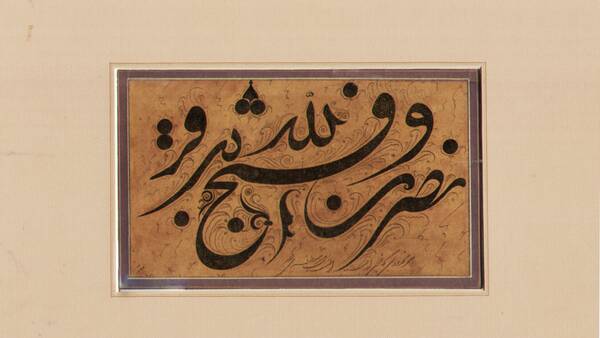 نصر من الله و فتح قریب